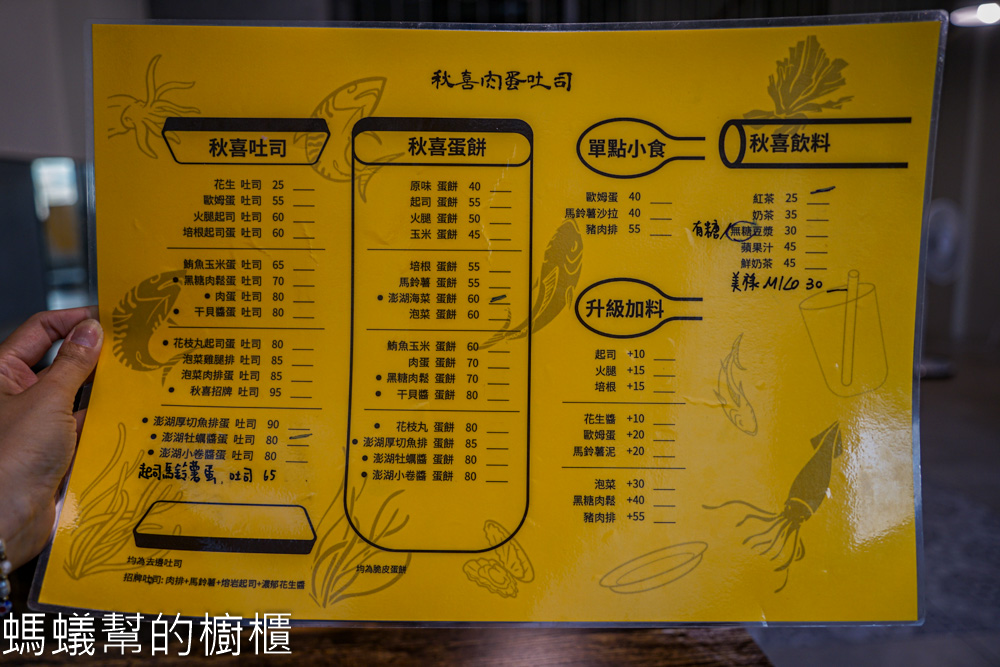 秋喜肉蛋吐司
秋喜吐司
花生 吐司 25
歐姆蛋 吐司 55
火腿起司 吐司 60
培根起司蛋 吐司 60
鮪魚玉米蛋 吐司 65
• 黑糖肉鬆蛋 吐司 70
• 肉蛋 吐司 80
• 干貝醬蛋 吐司 80
• 花枝丸起司蛋 吐司 80
泡菜雞腿排 吐司 85
泡菜肉排蛋 吐司 85
• 秋喜招牌 吐司 95
• 澎湖厚切魚排蛋 吐司 90
• 澎湖牡蠣醬蛋 吐司 80
• 澎湖小卷醬蛋 吐司 80
起司馬鈴薯蛋.吐司 65
均為去邊吐司
招牌吐司: 肉排+馬鈴薯+熔岩起司+濃郁花生醬
秋喜蛋餅
原味 蛋餅 40
起司 蛋餅 55
火腿 蛋餅 50
玉米 蛋餅 45
培根 蛋餅 55
馬鈴薯 蛋餅 55
• 澎湖海菜 蛋餅 60
泡菜 蛋餅 60
鮪魚玉米 蛋餅 60
肉蛋 蛋餅 70
• 黑糖肉鬆 蛋餅 70
• 干貝醬 蛋餅 80
• 花枝丸 蛋餅 80
• 澎湖厚切魚排 蛋餅 85
• 澎湖牡蠣醬 蛋餅 80
• 澎湖小卷醬 蛋餅 80
均為脆皮蛋餅
單點小食
歐姆蛋 40
馬鈴薯沙拉 40
豬肉排 55
升級加料
起司 +10
火腿 +15
培根 +15
花生醬 +10
歐姆蛋 +20
馬鈴薯泥 +20
泡菜 +30
黑糖肉鬆 +40
豬肉排 +55
秋喜飲料
紅茶 25
奶茶 35
有糖 無糖豆漿 30
蘋果汁 45
鮮奶茶 45
美祿MILO 30
螞蟻幫的櫥櫃